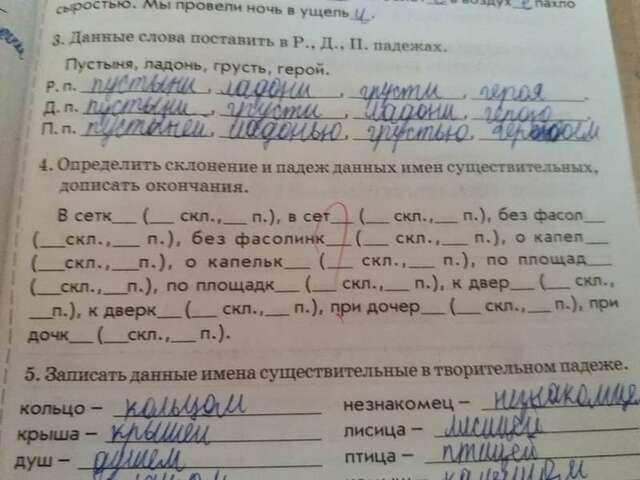 сыростью. Мы провели ночь в ущель
пахло
3. Данные слова поставить в Р., Д., П. падежах.
Пустыня, ладонь, грусть, герой.
Р. п. пустыни, ладони, грусти, героя.
Д. п. пустыни, грусти, ладони, герою
П. п. пустыней, грустью, героем
4. Определить склонение и падеж данных имен существительных,
дописать окончания.
В сетк__ (__ скл., __ п.), в сет__ (__ скл., __ п.), без фасол__
(__ скл., __ п.), без фасолинк__ (__ скл., __ п.), о капел__
(__ скл., __ п.), о капельк__ (__ скл., __ п.), по площад__
(__ скл., __ п.), по площадк__ (__ скл., __ п.), к двер__ (__ скл.,
__ п.), к дверк__ (__ скл., __ п.), при дочер__ (__ скл., __ п.), при
дочк__ (__ скл., __ п.).
5. Записать данные имена существительные в творительном падеже.
кольцо – кольцом незнакомец –
крыша – крышей лисица – лисицей
душ – душем птица – птицей